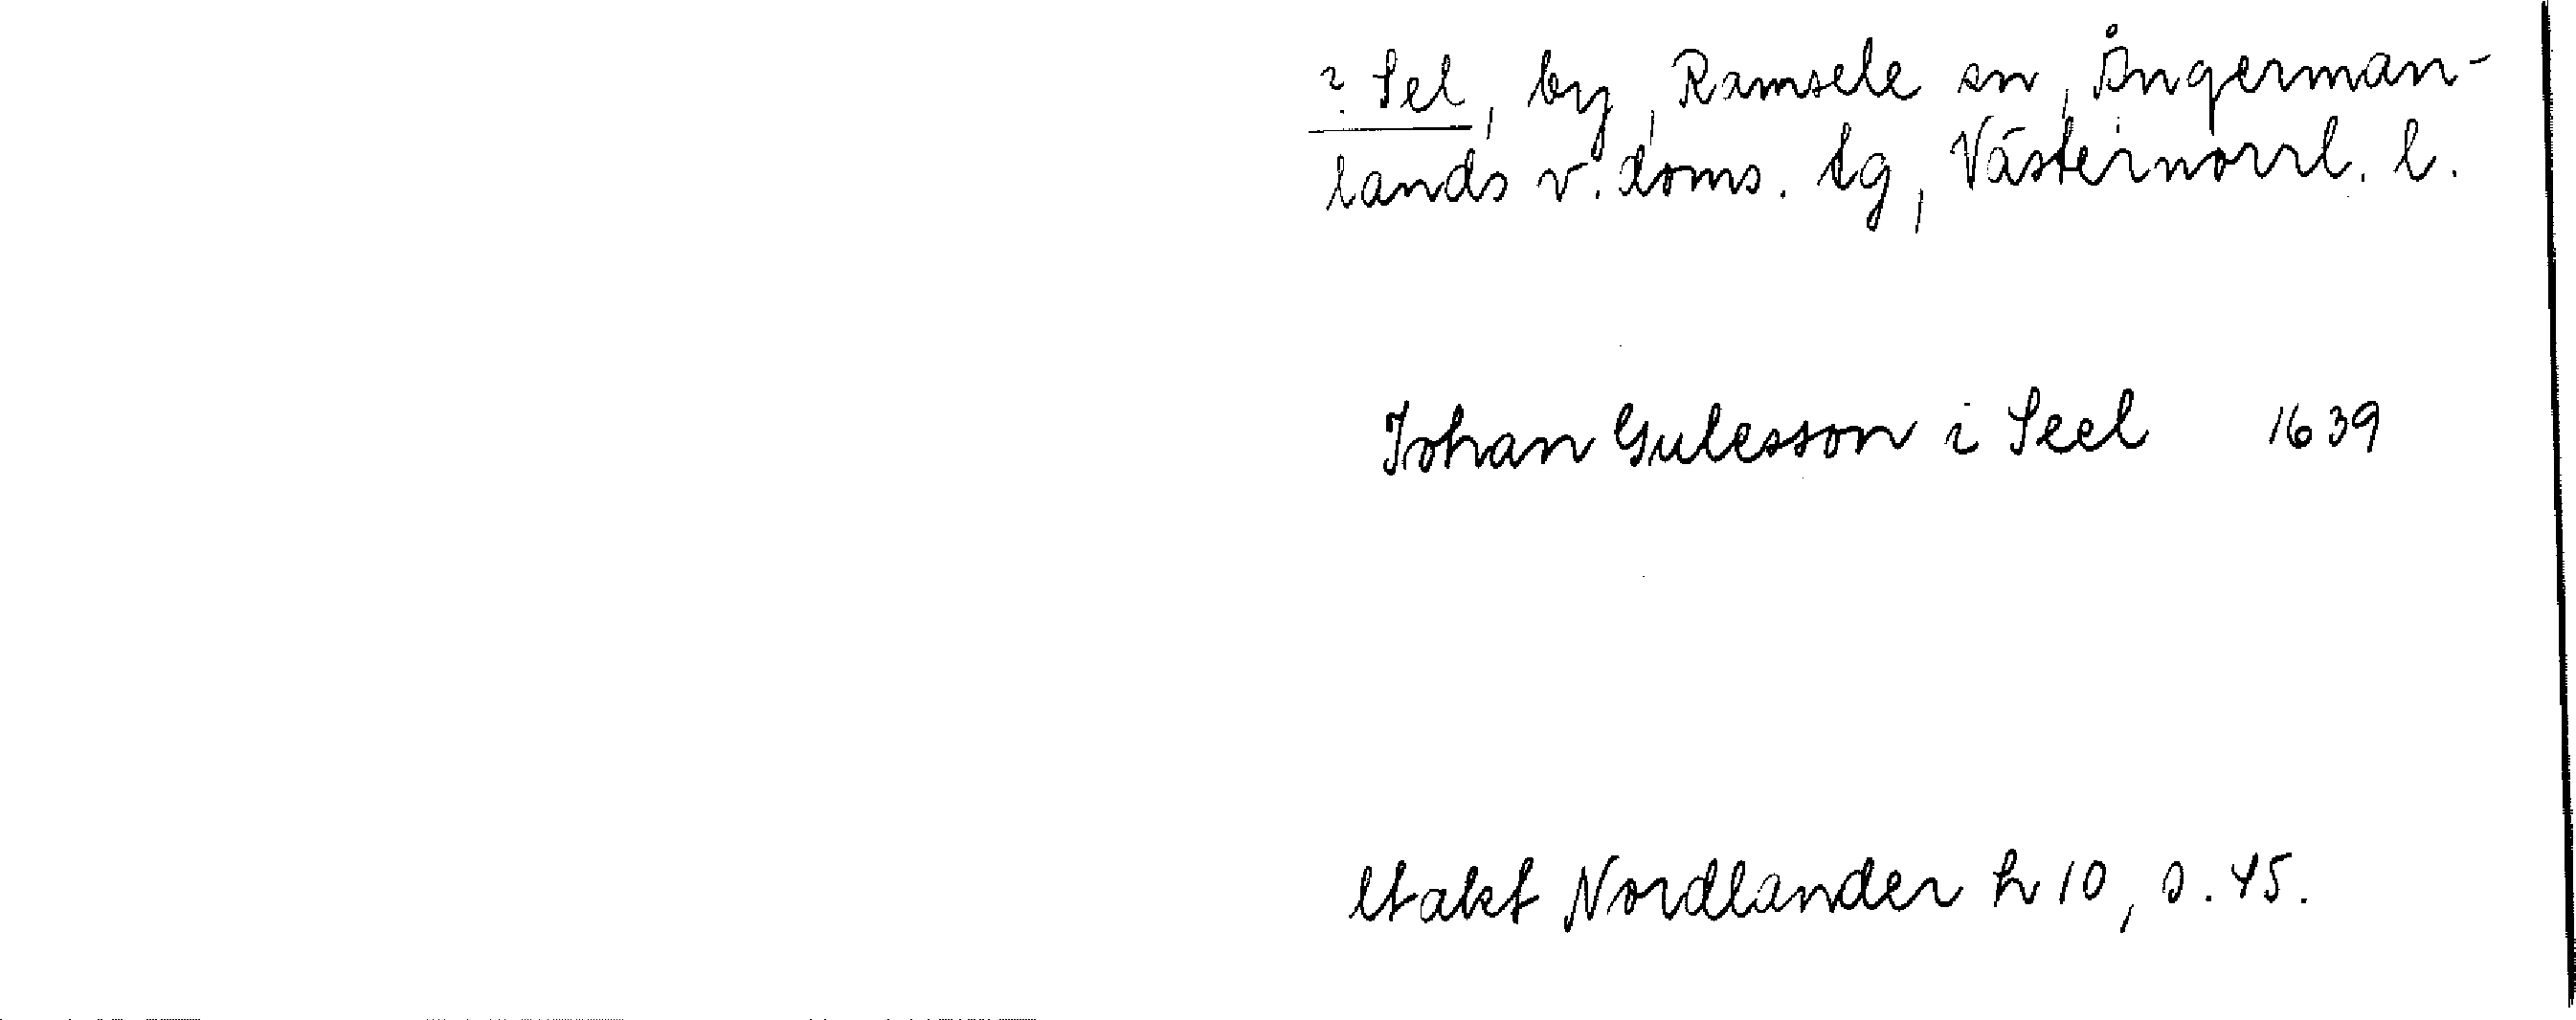 ? Sel, by, Ramsele sn, Ångerman-
lands v. doms. tg, Västernorrl. l.
Johan Gulesson i Seel 1639
Utakt Nordlander h 10, s. 45.